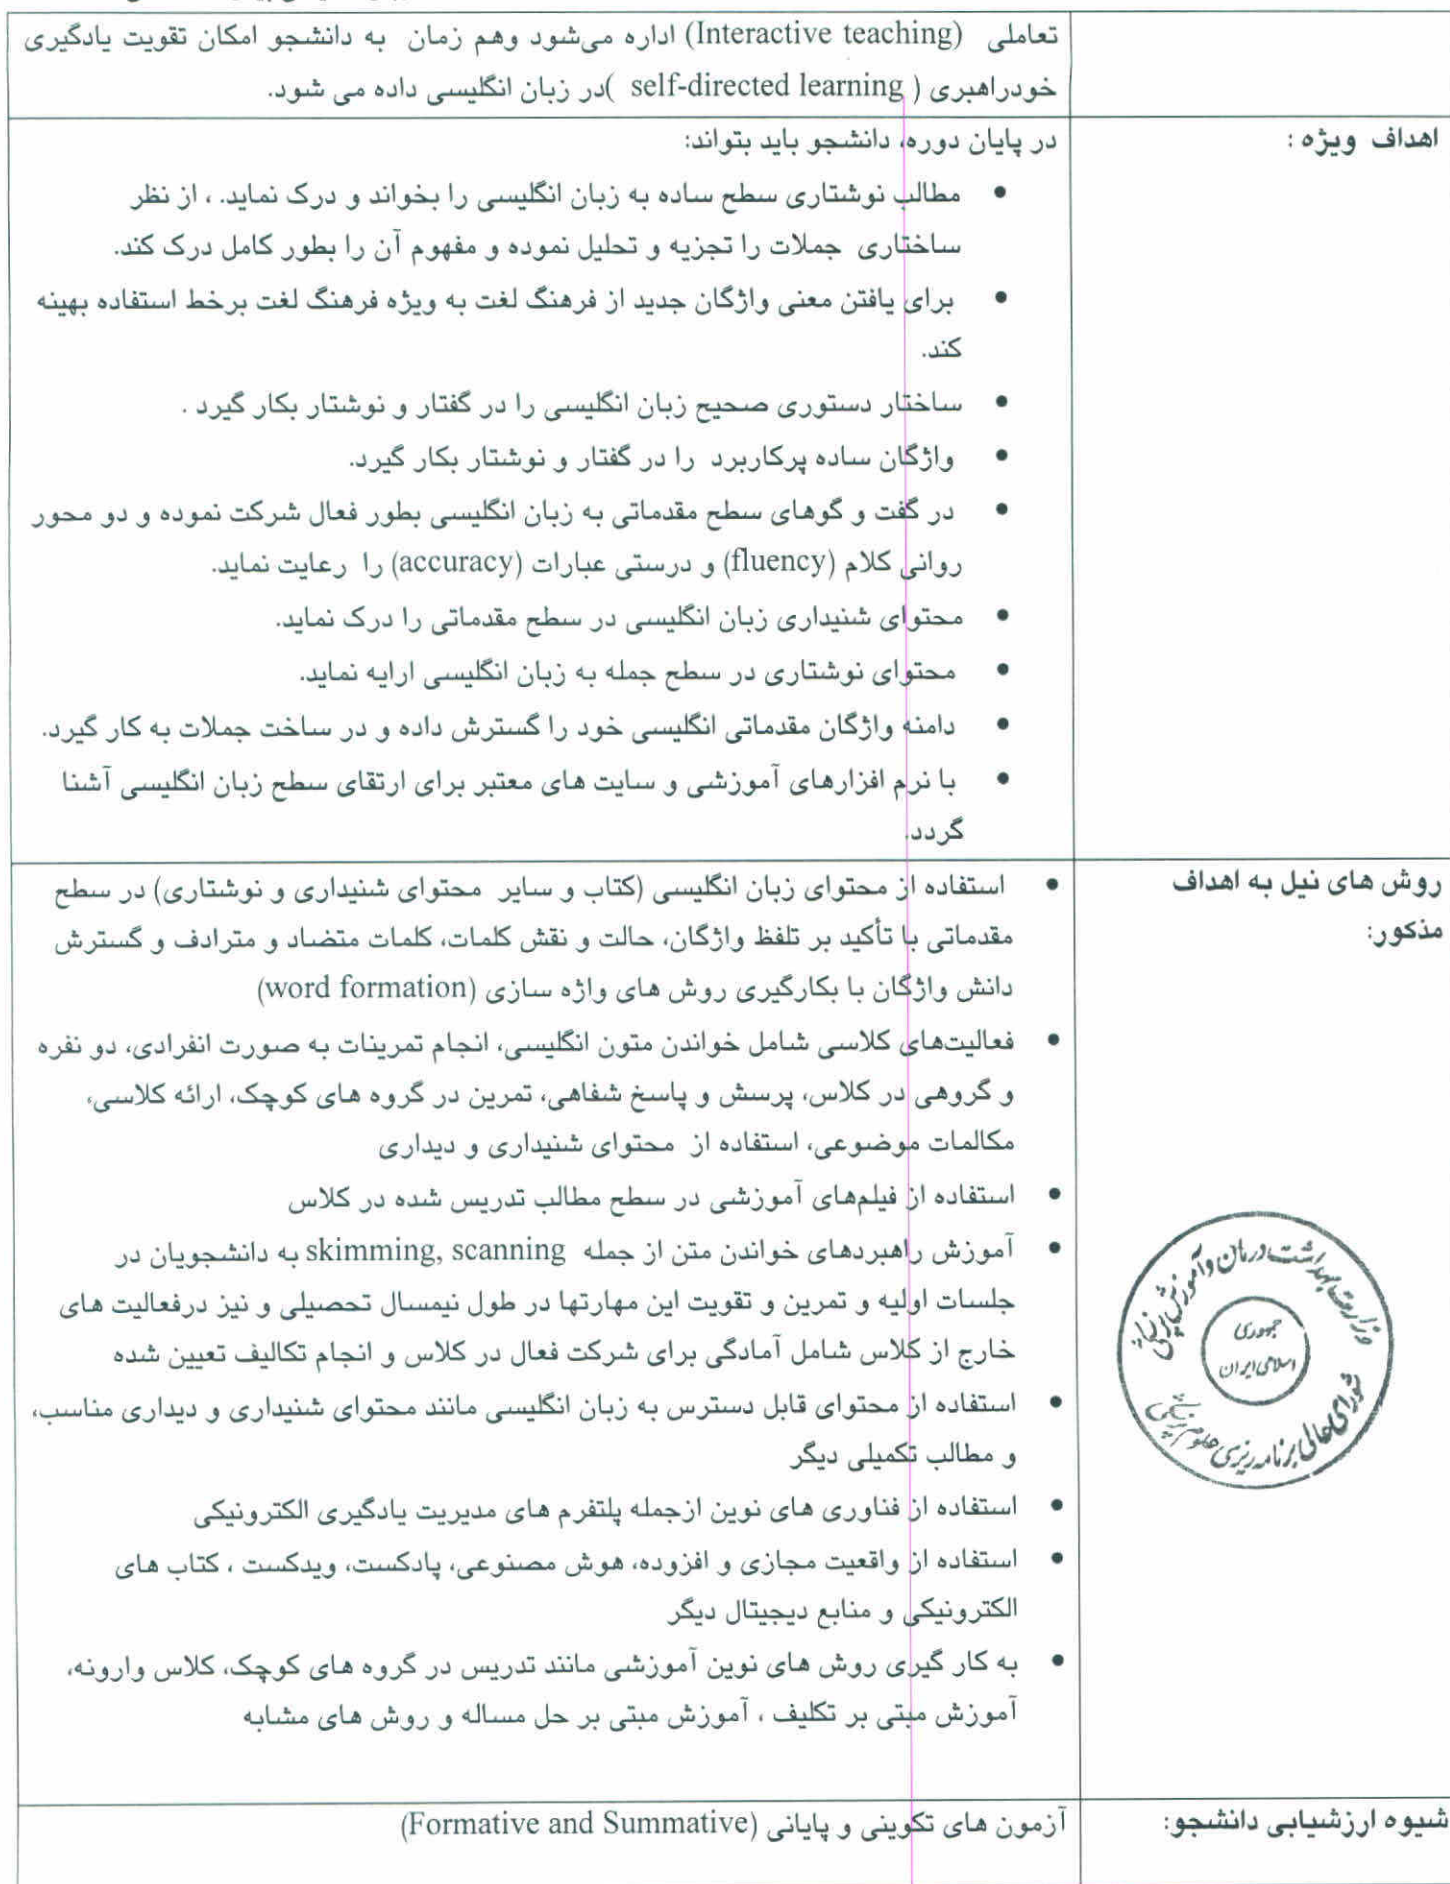 تعاملی (Interactive teaching) اداره می‌شود وهم زمان به دانشجو امکان تقویت یادگیری
خودراهبری ( self-directed learning )در زبان انگلیسی داده می شود.
اهداف ویژه :
در پایان دوره، دانشجو باید بتواند:
• مطالب نوشتاری سطح ساده به زبان انگلیسی را بخواند و درک نماید. ، از نظر
ساختاری جملات را تجزیه و تحلیل نموده و مفهوم آن را بطور کامل درک کند.
• برای یافتن معنی واژگان جدید از فرهنگ لغت به ویژه فرهنگ لغت برخط استفاده بهینه
کند.
• ساختار دستوری صحیح زبان انگلیسی را در گفتار و نوشتار بکار گیرد .
• واژگان ساده پرکاربرد را در گفتار و نوشتار بکار گیرد.
• در گفت و گوهای سطح مقدماتی به زبان انگلیسی بطور فعال شرکت نموده و دو محور
روانی کلام (fluency) و درستی عبارات (accuracy) را رعایت نماید.
• محتوای شنیداری زبان انگلیسی در سطح مقدماتی را درک نماید.
• محتوای نوشتاری در سطح جمله به زبان انگلیسی ارایه نماید.
• دامنه واژگان مقدماتی انگلیسی خود را گسترش داده و در ساخت جملات به کار گیرد.
• با نرم افزارهای آموزشی و سایت های معتبر برای ارتقای سطح زبان انگلیسی آشنا
گردد.
روش های نیل به اهداف
مذکور:
• استفاده از محتوای زبان انگلیسی (کتاب و سایر محتوای شنیداری و نوشتاری) در سطح
مقدماتی با تأکید بر تلفظ واژگان، حالت و نقش کلمات، کلمات متضاد و مترادف و گسترش
دانش واژگان با بکارگیری روش های واژه سازی (word formation)
• فعالیت‌های کلاسی شامل خواندن متون انگلیسی، انجام تمرینات به صورت انفرادی، دو نفره
و گروهی در کلاس، پرسش و پاسخ شفاهی، تمرین در گروه های کوچک، ارائه کلاسی،
مکالمات موضوعی، استفاده از محتوای شنیداری و دیداری
• استفاده از فیلم‌های آموزشی در سطح مطالب تدریس شده در کلاس
• آموزش راهبردهای خواندن متن از جمله skimming, scanning به دانشجویان در
جلسات اولیه و تمرین و تقویت این مهارتها در طول نیمسال تحصیلی و نیز درفعالیت های
خارج از کلاس شامل آمادگی برای شرکت فعال در کلاس و انجام تکالیف تعیین شده
• استفاده از محتوای قابل دسترس به زبان انگلیسی مانند محتوای شنیداری و دیداری مناسب،
و مطالب تکمیلی دیگر
• استفاده از فناوری های نوین ازجمله پلتفرم های مدیریت یادگیری الکترونیکی
• استفاده از واقعیت مجازی و افزوده، هوش مصنوعی، پادکست، ویدکست ، کتاب های
الکترونیکی و منابع دیجیتال دیگر
• به کار گیری روش های نوین آموزشی مانند تدریس در گروه های کوچک، کلاس وارونه،
آموزش مبتی بر تکلیف ، آموزش مبتی بر حل مساله و روش های مشابه
وزارت بهداشت درمان وآموزش پزشکی
جمهوری
اسلامی ایران
شورای عالی برنامه ریزی علوم پزشکی
شیوه ارزشیابی دانشجو:
آزمون های تکوینی و پایانی (Formative and Summative)